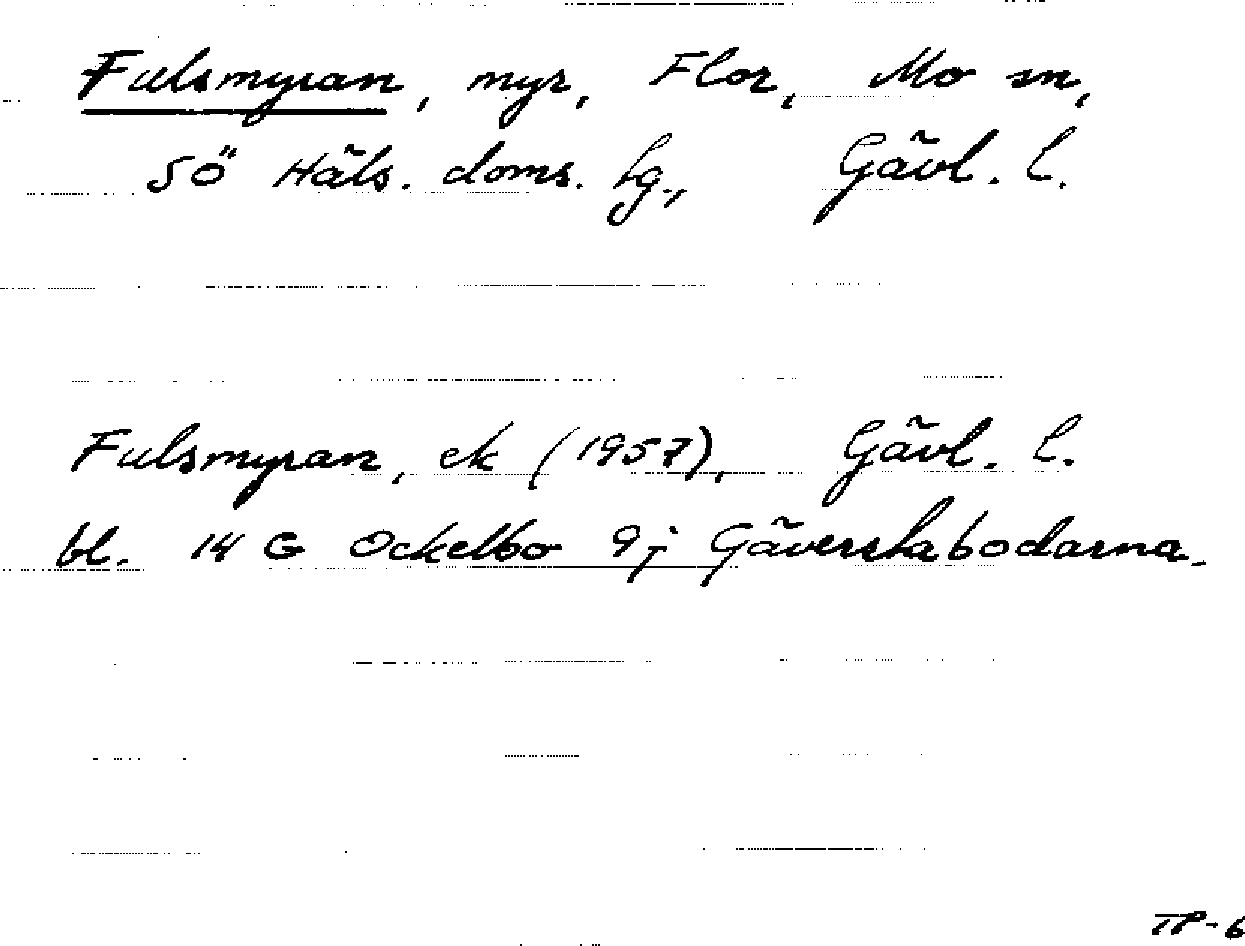 Fulsmyran, myr, Flor, Mo sn,
Sö Häls. doms. hg., Gävl. l.
Fulsmyran, ek (1957), Gävl. l.
bl. 14 G Ockelbo 9j Gäverstabodarna.
TP-6